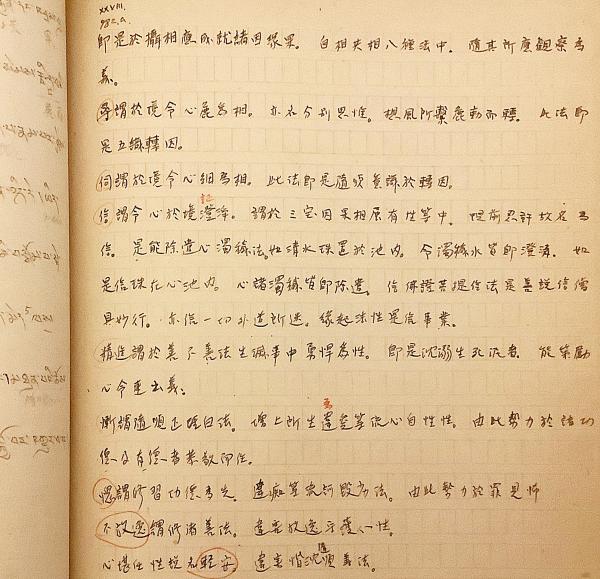 XXVIII.
982.a.
即是於攝相應成就諸因緣果。自相共相八種法中。隨其所應觀察為
義。
尋謂於境令心麁為相。亦名分別思惟。想風所繫麁動而轉。此法即
是五識轉因。
伺謂於境令心細為相。此法即是隨順意識於轉因。
信謂令心於境澄淨。謂於三宝因果相屬有性等中。現前忍許故名為
信。是能除遣心濁穢法。如清水珠置於池內。令濁穢水皆即澄清。如
是信珠在心池內。心諸濁穢皆即除遣。信佛證菩提信法是善說信僧
具妙行。亦信一切外道所迷。緣起法性是信事業。
精進謂於善不善法生滅事中勇悍為性。即是沈溺生死泥者 能策勵
心令速出義。
慚謂隨順正理白法。增上所生違愛等流心自性性。由此勢力於諸功
德及有德者恭敬而住。
愧謂修習功德為先。違癡等流訶毀劣法。由此勢力於罪見怖
不放逸謂修諸善法。違害放逸守護心性。
心堪任性說名輕安 違害惛沈隨順善法。